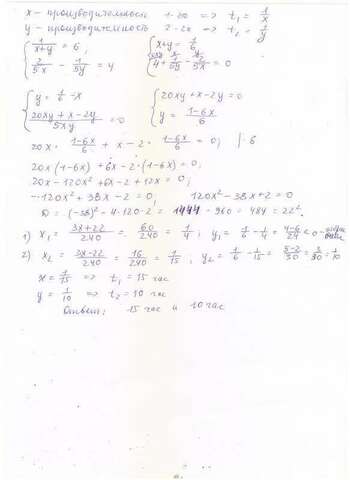 x - производительность 1-го => t₁ = 1/x
y - производительность 2-го => t₂ = 1/y
{ 1/(x+y) = 6; { x+y = 1/6
{ 2/(5x) - 1/(5y) = 4 { 4 + 1/(5y) - 2/(5x) = 0
{ y = 1/6 - x { 20xy + x - 2y = 0
{ (20xy + x - 2y)/(5xy) = 0 { y = (1-6x)/6
20x · (1-6x)/6 + x - 2 · (1-6x)/6 = 0; | · 6
20x(1-6x) + 6x - 2·(1-6x) = 0;
20x - 120x² + 6x - 2 + 12x = 0;
-120x² + 38x - 2 = 0; 120x² - 38x + 2 = 0
D = (-38)² - 4·120·2 = 1444 - 960 = 484 = 22².
1) x₁ = (38+22)/240 = 60/240 = 1/4; y₁ = 1/6 - 1/4 = (4-6)/24 < 0 -
2) x₂ = (38-22)/240 = 16/240 = 1/15; y₂ = 1/6 - 1/15 = (5-2)/30 = 3/30 = 1/10
x = 1/15 => t₁ = 15 час
y = 1/10 => t₂ = 10 час
Ответ: 15 час и 10 час